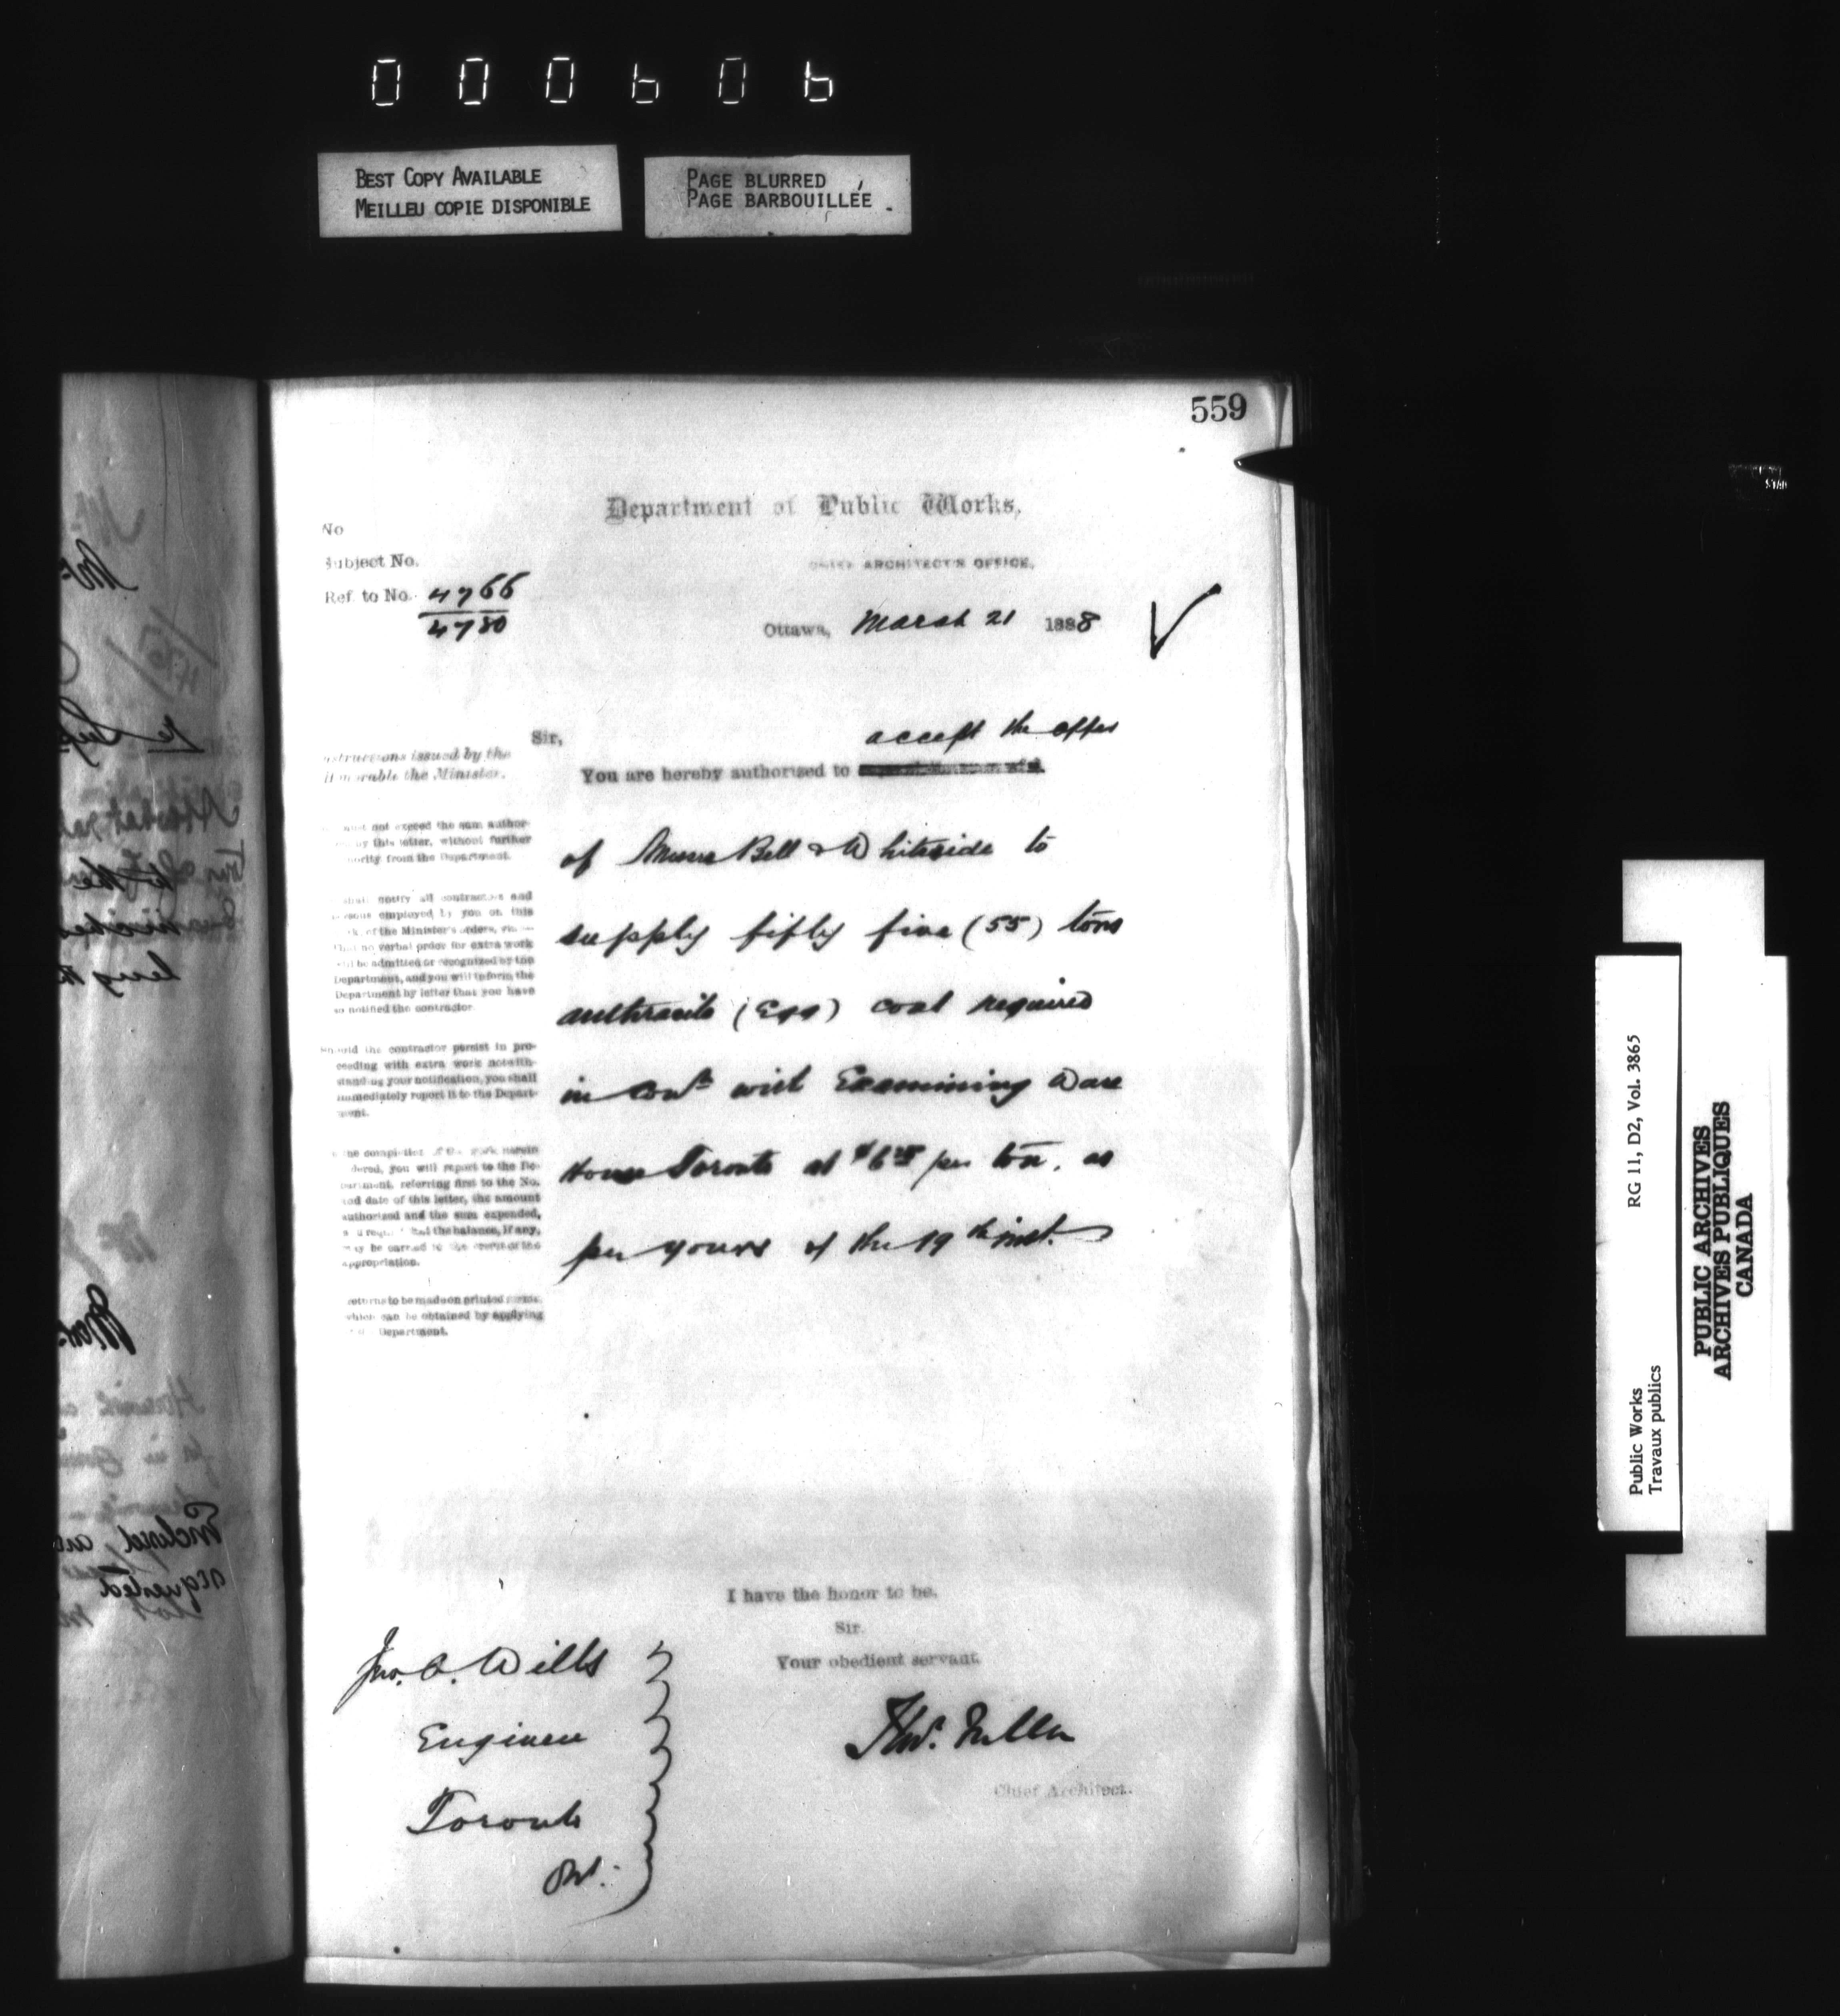 000606
BEST COPY AVAILABLE
MEILLEU COPIE DISPONIBLE
PAGE BLURRED
PAGE BARBOUILLÉE
559
Department of Public Works,
No
Subject No.
CHIEF ARCHITECT'S OFFICE,
Ref. to No. 4766
4780
Ottawa, March 21 1888
Sir,
accept the offer
You are hereby authorized to
of Messrs Bell & Whiteside to
supply fifty five (55) tons
anthracite (Egg) coal required
in con with Examining Ware
House Toronto at $6 per ton, as
per yours of the 19th inst.
nstructions issued by the
Honorable the Minister.
must not exceed the sum author-
by this letter, without further
ority from the Department.
shall notify all contractors and
persons employed by you on this
of the Minister's orders,
that no verbal order for extra work
will be admitted or recognized by the
Department, and you will inform the
Department by letter that you have
so notified the contractor.
Should the contractor persist in pro-
ceeding with extra work notwith-
standing your notification, you shall
immediately report it to the Depart-
ment.
the completion of the work herein
dered, you will report to the De-
partment, referring first to the No.
and date of this letter, the amount
authorized and the sum expended,
and request that the balance, if any,
may be carried to the credit of the
appropriation.
returns to be made on printed forms,
which can be obtained by applying
Department.
I have the honor to be,
Sir,
Your obedient servant.
Jno. A. Wills
Engineer
Toronto
Ont.
Thos. Fuller
Chief Architect.
RG 11, D2, Vol. 3865
Public Works
Travaux publics
PUBLIC ARCHIVES
ARCHIVES PUBLIQUES
CANADA